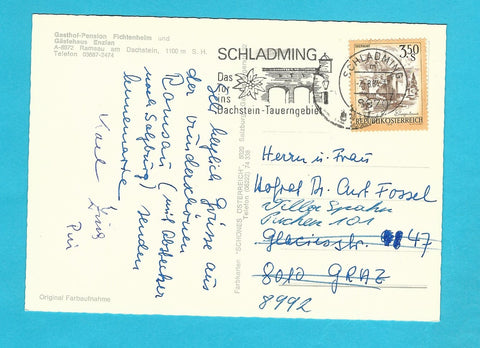 Gasthof-Pension Fichtenheim und
Gästehaus Enzian
A-8972 Ramsau am Dachstein, 1100 m S. H.
Telefon 03687-2474
Sehr herzlich Grüsse aus
der wunderschönen
Ramsau (mit Abstecher
nach Salzburg) senden
Annemarie
Karl
Original Farbaufnahme
Farbkarten "SCHÖNES ÖSTERREICH", 5020 Salzburg
Telefon (06222) 74 338
SCHLADMING
Das
Tor
ins
Dachstein-Tauerngebiet
SCHLADMING
8970
3,50
S
REPUBLIK ÖSTERREICH
Herrn u. Frau
Hofrat Dr. Curt Fossel
Villa
Puchen 101
Glacisstr. 47
8010 GRAZ
8992